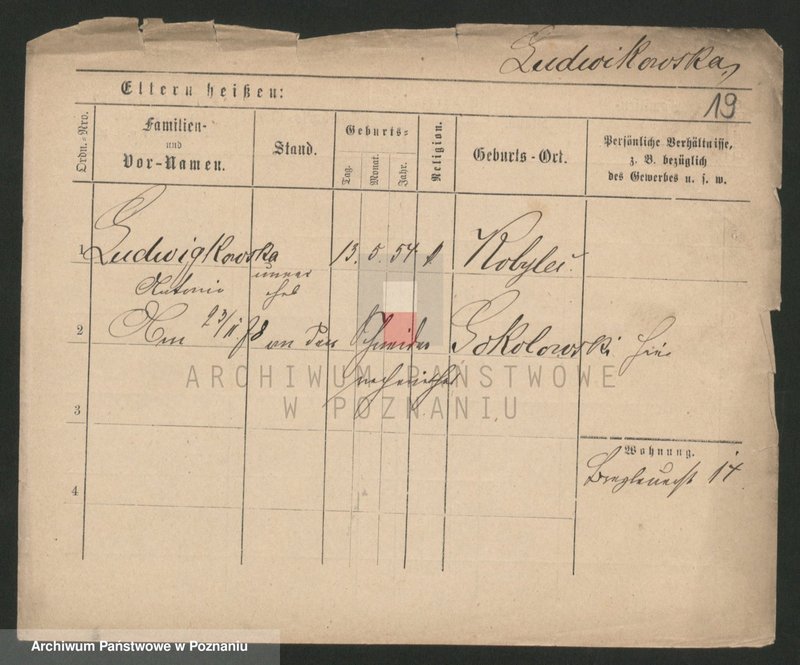 Ludwikowska
19
Eltern heißen:
Ordn.-Nro.
Familien- und Vor-Namen.
Stand.
Geburts-
Tag.
Monat.
Jahr.
Religion.
Geburts-Ort.
Persönliche Verhältnisse, z. B. bezüglich des Gewerbes u. s. w.
1 Ludwigkowska 13. 5. 54
Antonie
2 Am 23/11 78 an den Schneider Sokolowski hier
verheirathet
3
Wohnung.
14
4
ARCHIWUM PAŃSTWOWE
W POZNANIU
Archiwum Państwowe w Poznaniu